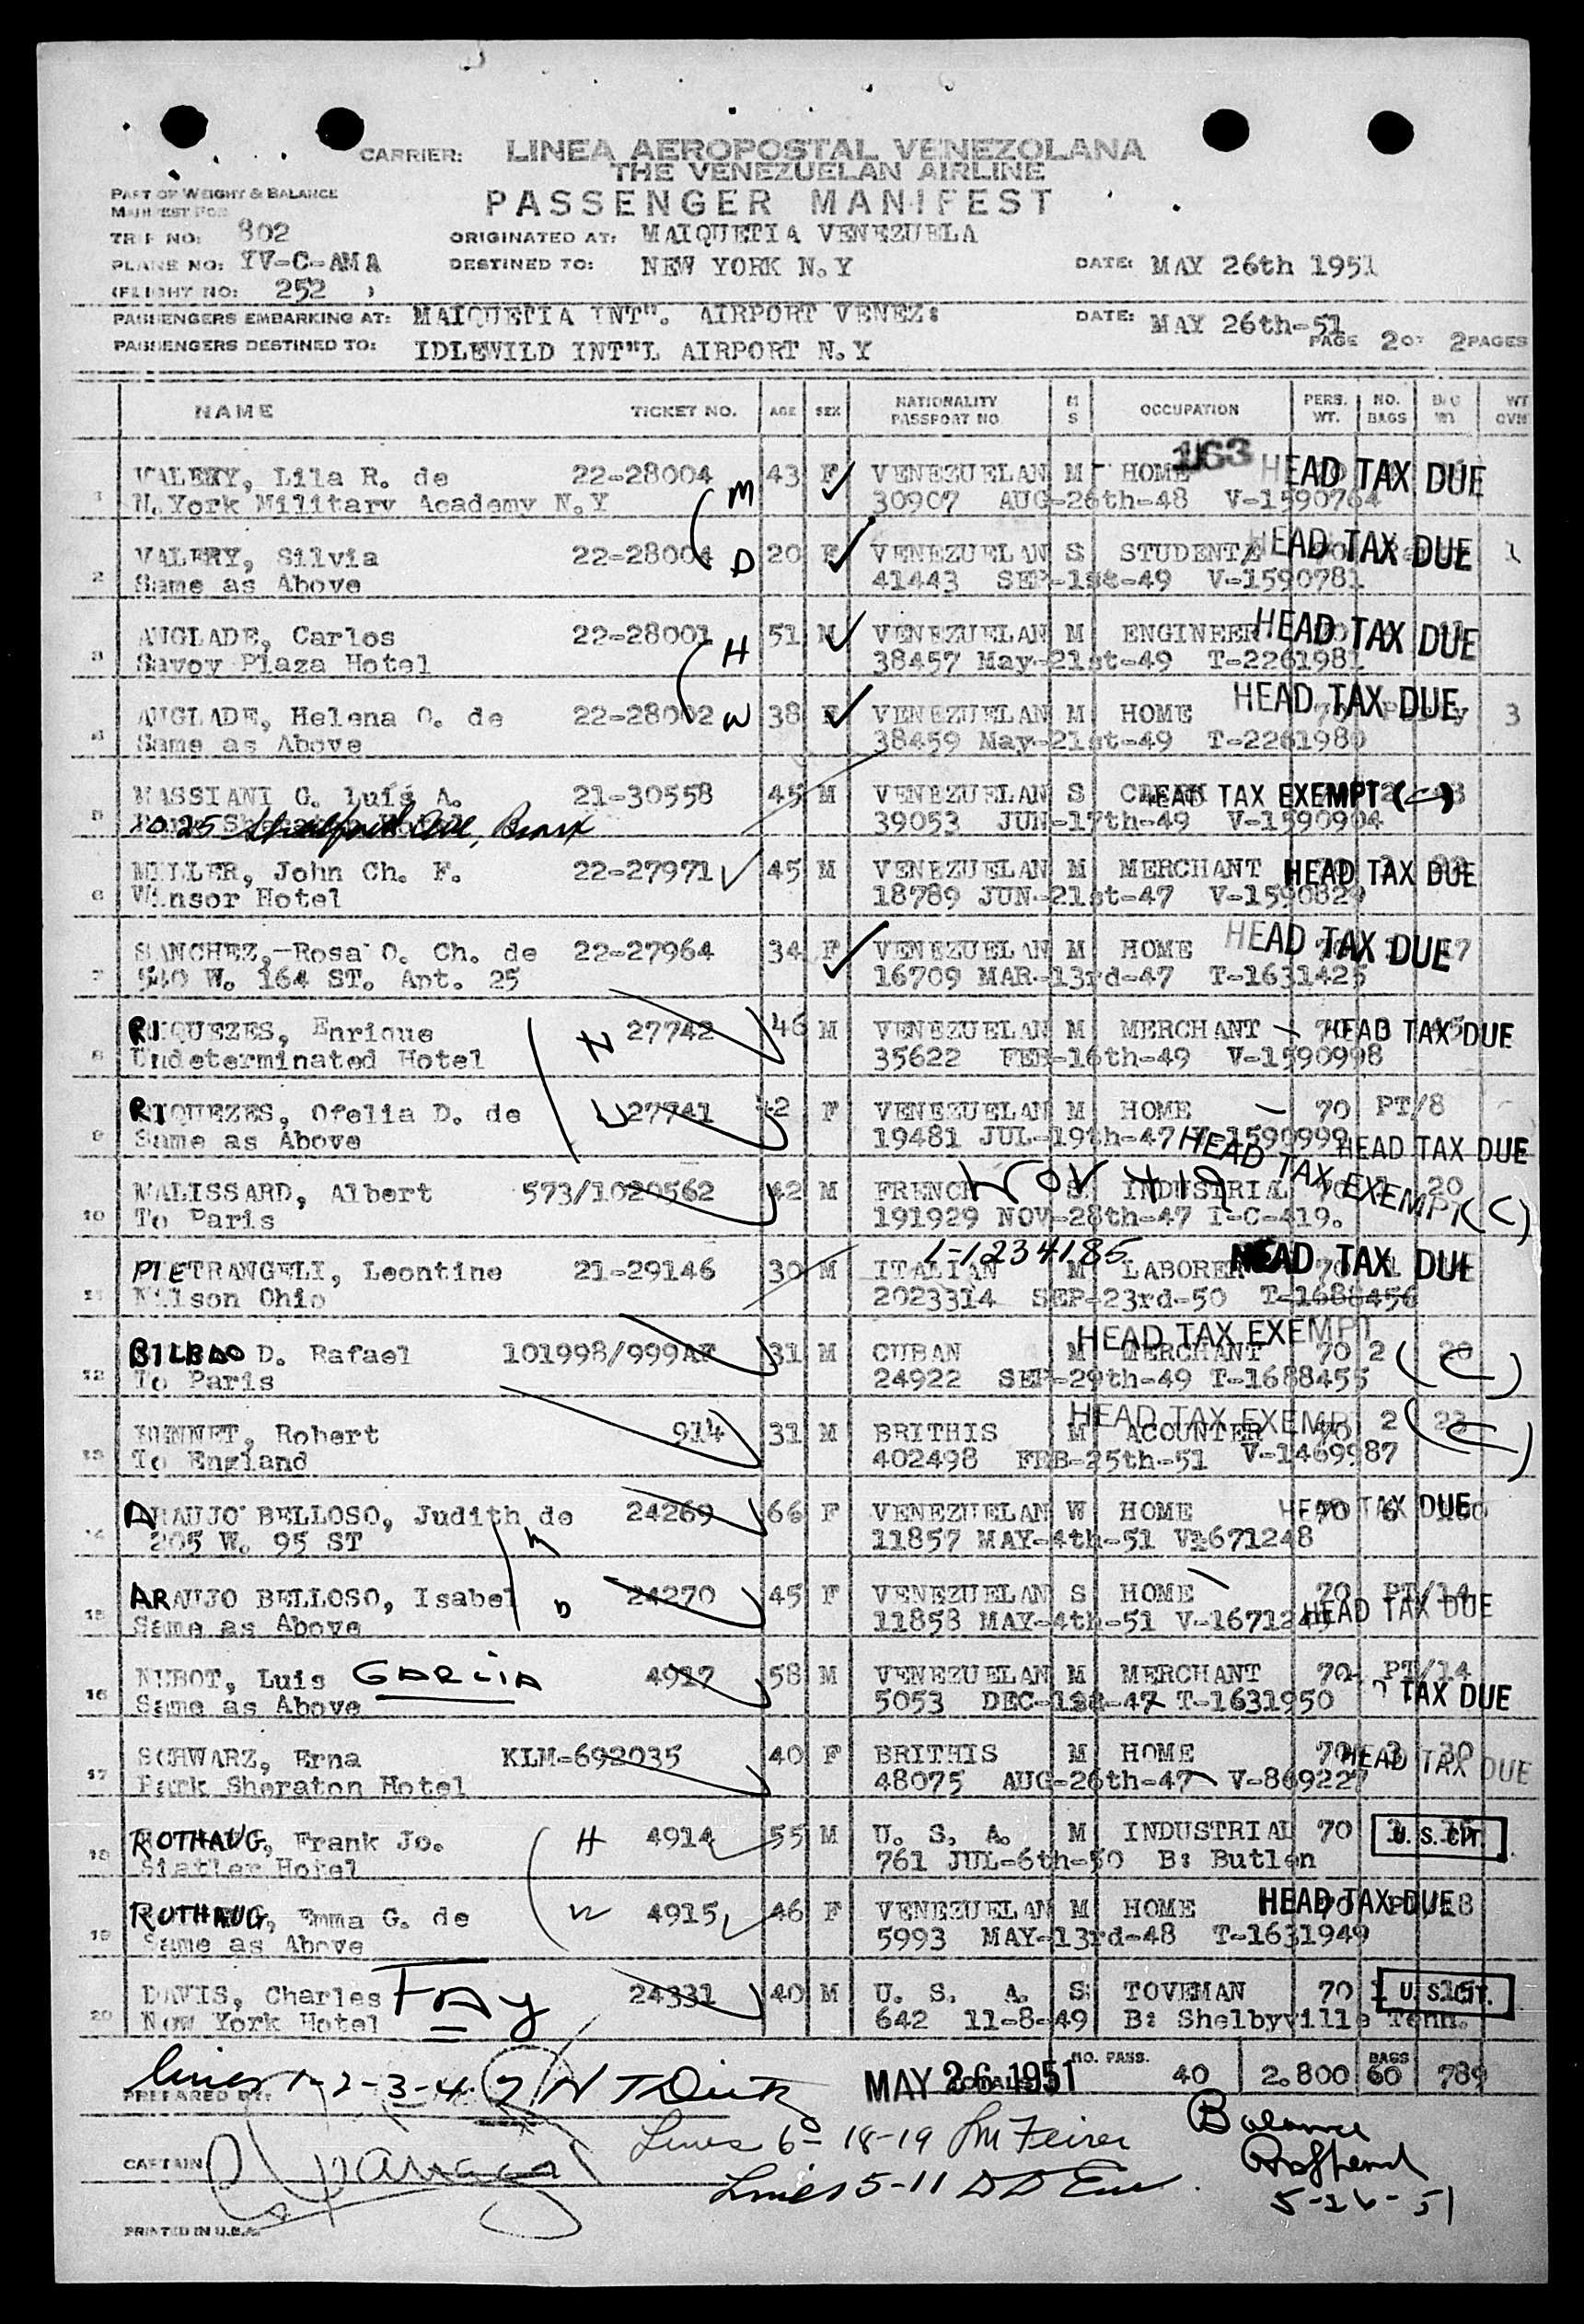 CARRIER: LINEA AEROPOSTAL VENEZOLANA
THE VENEZUELAN AIRLINE
PASSENGER MANIFEST
PART OF WEIGHT & BALANCE
MANIFEST FOR
TRIP NO: 802 ORIGINATED AT: MAIQUETIA VENEZUELA
PLANE NO: YV-C-AMA DESTINED TO: NEW YORK N.Y DATE: MAY 26th 1951
(FLIGHT NO: 252 )
PASSENGERS EMBARKING AT: MAIQUETIA INT". AIRPORT VENEZ: DATE: MAY 26th-51
PASSENGERS DESTINED TO: IDLEWILD INT"L AIRPORT N.Y PAGE 2 OF 2 PAGES
NAME TICKET NO. AGE SEX NATIONALITY PASSPORT NO. M S OCCUPATION PERS. WT. NO. BAGS WT
163
1 VALERY, Lila R. de 22-28004 M 43 F VENEZUELAN M HOME HEAD TAX DUE
N.York Military Academy N.Y 30907 AUG-26th-48 V-1590764
2 VALERY, Silvia 22-28004 D 20 F VENEZUELAN S STUDENT HEAD TAX DUE 1
Same as Above 41443 SEP-1st-49 V-1590781
3 ANGLADE, Carlos 22-28001 H 51 M VENEZUELAN M ENGINEER HEAD TAX DUE
Savoy Plaza Hotel 38457 May-21st-49 T-2261981
4 ANGLADE, Helena O. de 22-28002 W 38 F VENEZUELAN M HOME 70 HEAD TAX DUE 3
Same as Above 38459 May-21st-49 T-2261980
5 MASSIANI G. Luis A. 21-30558 45 M VENEZUELAN S HEAD TAX EXEMPT (C)
1025 Ave, Bronx 39053 JUN-17th-49 V-1590904
6 MULLER, John Ch. F. 22-27971 45 M VENEZUELAN M MERCHANT HEAD TAX DUE
Winsor Hotel 18789 JUN-21st-47 V-1590829
7 SANCHEZ,-Rosa O. Ch. de 22-27964 34 F VENEZUELAN M HOME HEAD TAX DUE
540 W. 164 ST. Apt. 25 16709 MAR-13rd-47 T-1631425
8 RIQUEZES, Enrique H 27742 46 M VENEZUELAN M MERCHANT HEAD TAX DUE
Undeterminated Hotel 35622 FEB-16th-49 V-1590998
9 RIQUEZES, Ofelia D. de W 27741 42 F VENEZUELAN M HOME 70 PT/8
Same as Above 19481 JUL-19th-47 V-1590999 HEAD TAX DUE
10 MALISSARD, Albert 573/1020562 42 M FRENCH S INDUSTRIAL 70 20 HEAD TAX EXEMPT (C)
To Paris 191929 NOV-28th-47 I-C-419.
1-1234185
11 PIETRANGELI, Leontine 21-29146 30 M ITALIAN M LABORER 70 HEAD TAX DUE
Nilson Ohio 2023314 SEP-23rd-50 T-1688456
12 BILBAO D. Rafael 101998/999AF 31 M CUBAN M MERCHANT 70 2 20 HEAD TAX EXEMPT (C)
To Paris 24922 SEP-29th-49 T-1688455
13 BENNET, Robert 914 31 M BRITHIS M ACOUNTER 70 2 23 HEAD TAX EXEMPT (C)
To England 402498 FEB-25th-51 V-1469987
14 ARAUJO BELLOSO, Judith de M 24269 66 F VENEZUELAN W HOME 70 6 HEAD TAX DUE
205 W. 95 ST 11857 MAY-4th-51 V-1671248
15 ARAUJO BELLOSO, Isabel D 24270 45 F VENEZUELAN S HOME 70 PT/14
Same as Above 11858 MAY-4th-51 V-1671249 HEAD TAX DUE
16 NUBOT, Luis GARCIA 4917 58 M VENEZUELAN M MERCHANT 70 PT/14
Same as Above 5053 DEC-1st-47 T-1631950 TAX DUE
17 SCHWARZ, Erna KLM-692035 40 F BRITHIS M HOME 70 3 30 HEAD TAX DUE
Park Sheraton Hotel 48075 AUG-26th-47 V-869227
18 ROTHAUG, Frank Jo. H 4914 55 M U. S. A. M INDUSTRIAL 70 U. S. CIT.
Statler Hotel 761 JUL-6th-50 B: Butlen
19 ROTHAUG, Emma G. de W 4915 46 F VENEZUELAN M HOME 70 HEAD TAX DUE
Same as Above 5993 MAY-13rd-48 T-1631949
20 DAVIS, Charles FAY 24331 40 M U. S. A. S TOVEMAN 70 1 U. S. CIT.
New York Hotel 642 11-8-49 B: Shelbyville Tenn.
lines 1-2-3-4-7 MAY 26 1951 NO. PASS. 40 2.800 BAGS 60 789
PREPARED BY:
Lines 6-18-19 Balance
CAPTAIN
Lines 5-11
5-26-51
PRINTED IN U.S.A.